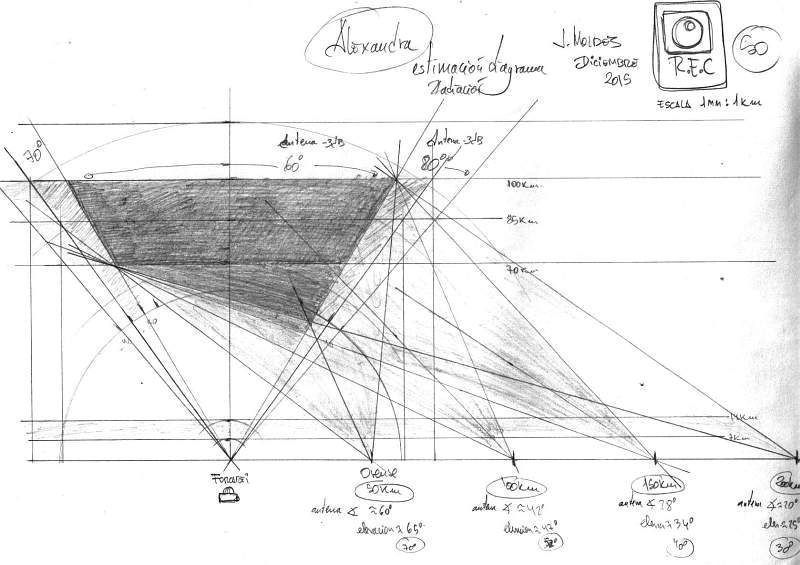 Alexandra
estimación diagrama
radiación
J. MOLDES
DICIEMBRE
2015
R.E.C
50
ESCALA 1mm : 1km
70°
Antena -3dB
60°
Antena -3dB
80°
100km
85km
70km
14km
7km
Forcarei
Orense
50km
antena ∢ ≈60°
elevación ≈ 65°
70°
100km
antena ∢ ≈42°
elevación ≈ 47°
52°
150km
antena ∢ 28°
elev ≈ 34°
40°
200km
antena ∢ ≈20°
elev ≈ 25°
30°